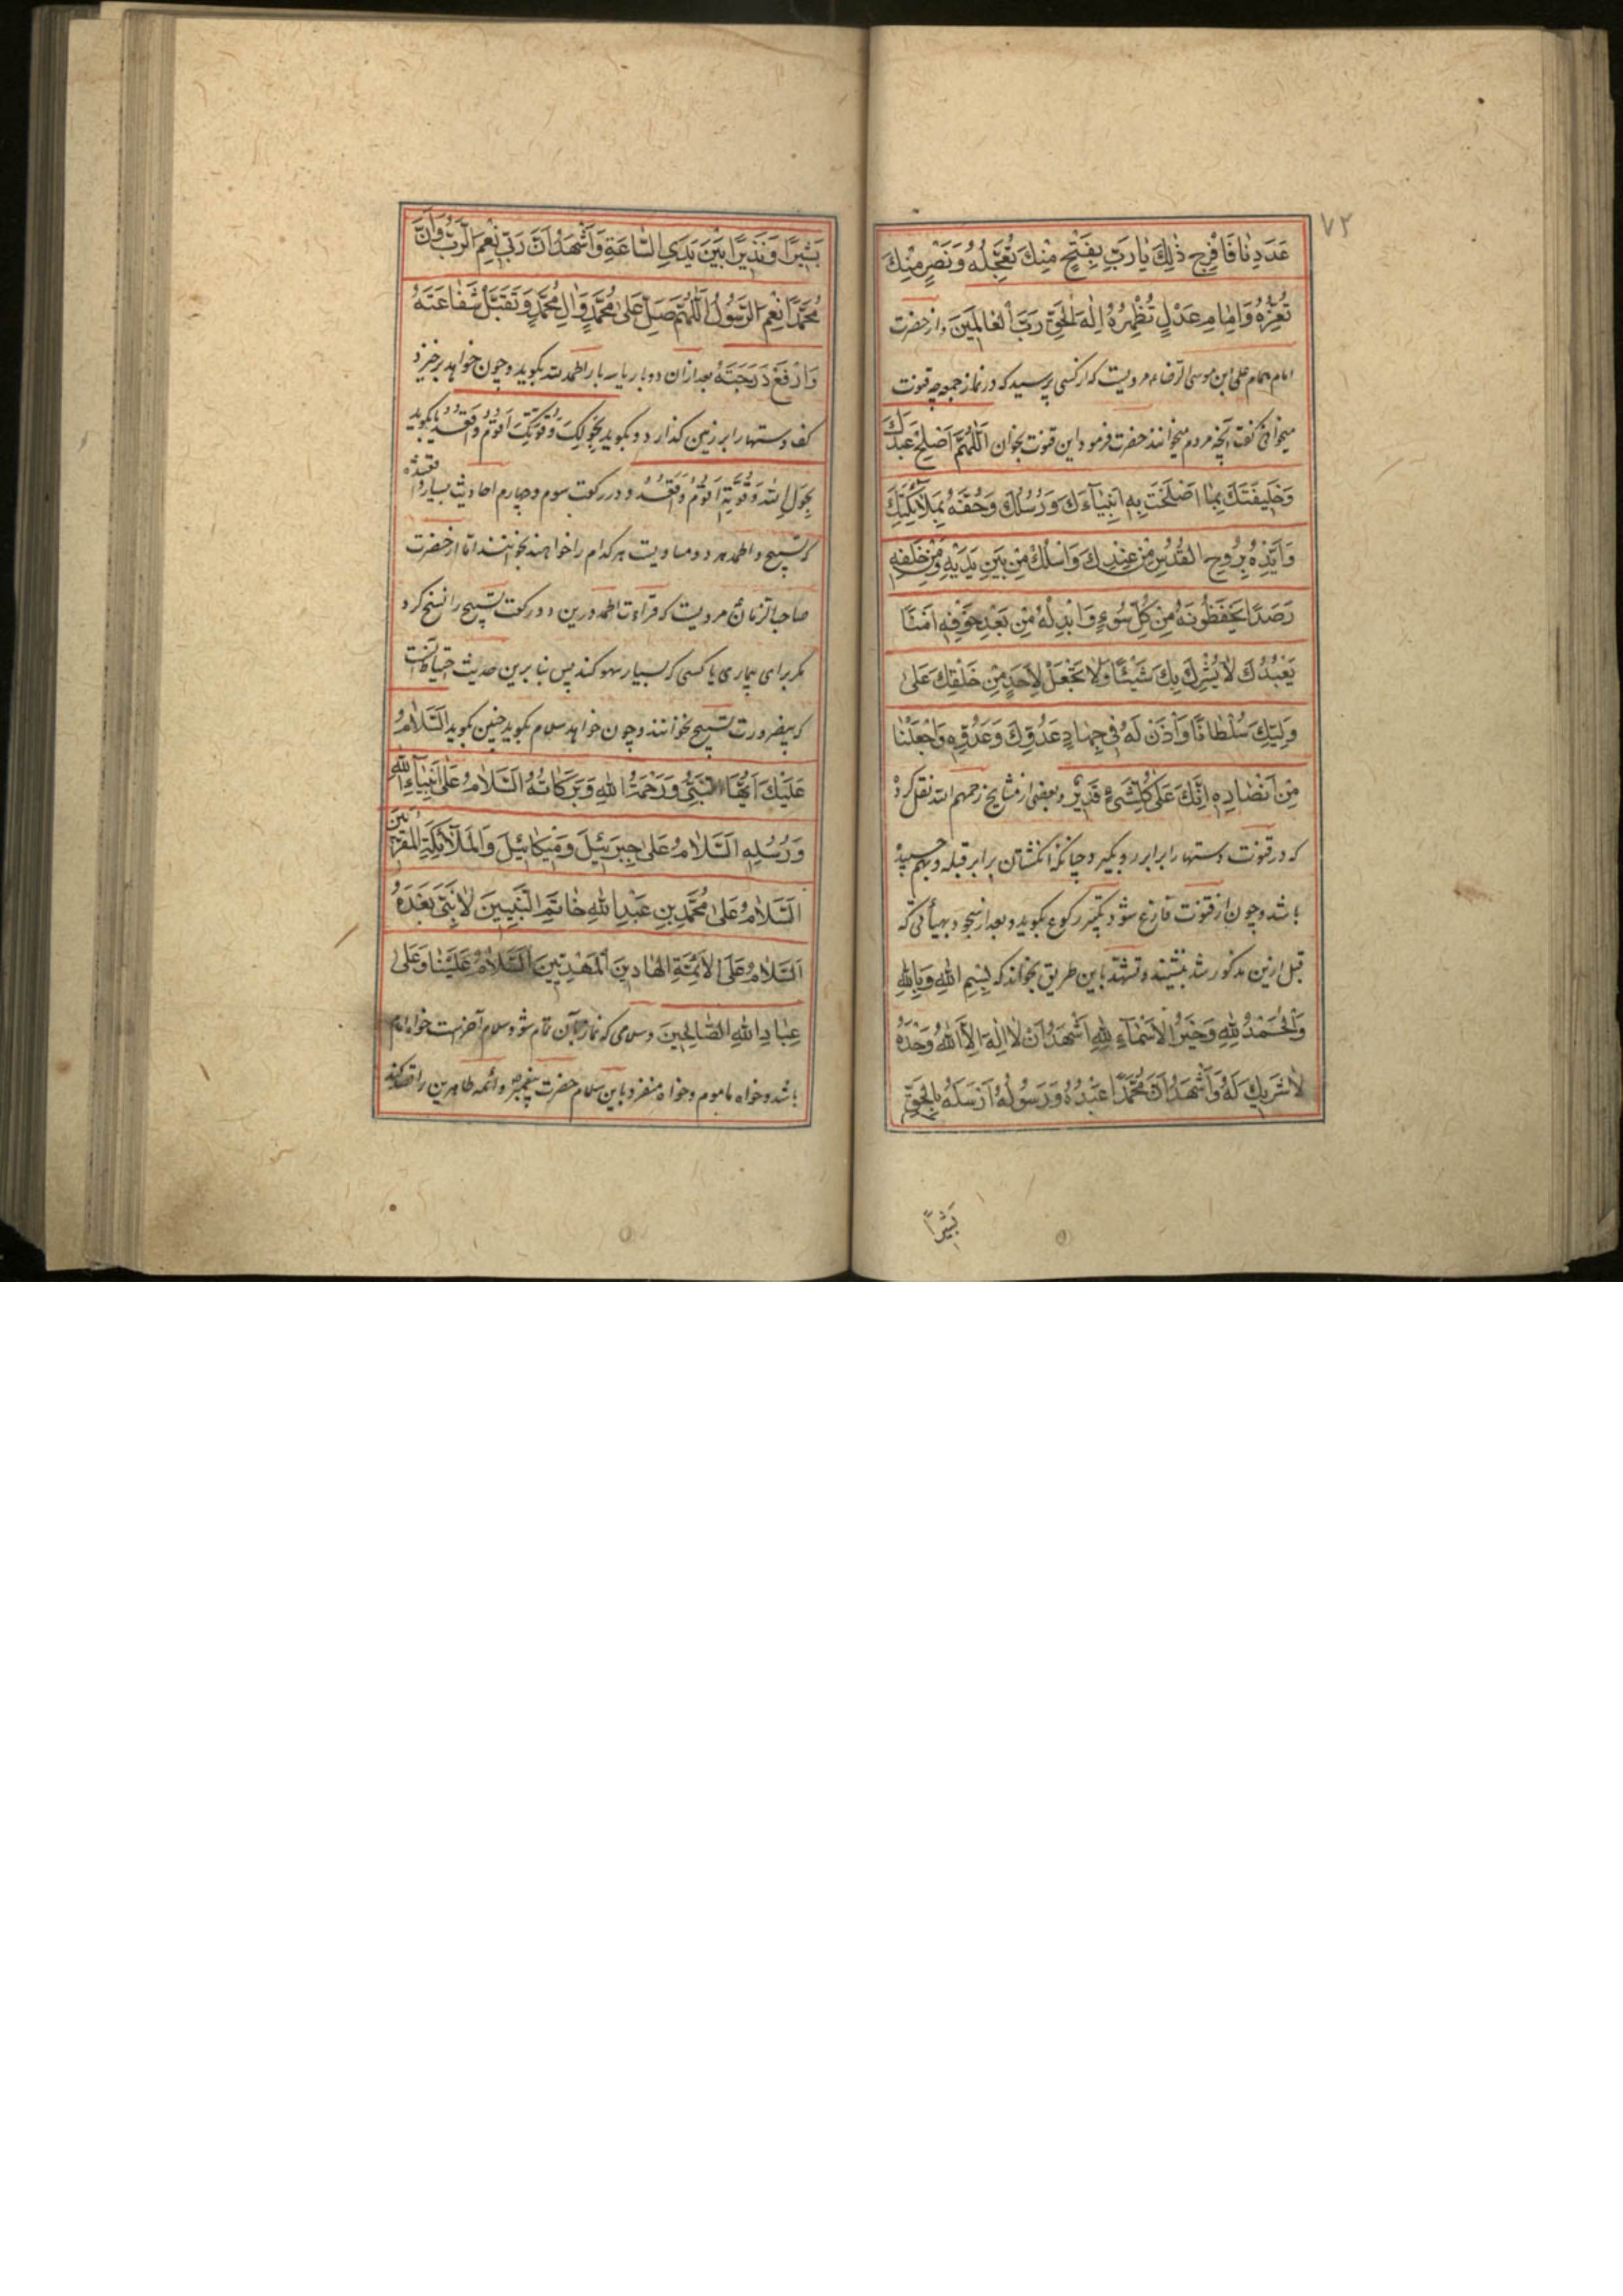 ٧٢
عَدَدِنٰا فَافْرِجْ ذٰلِكَ يٰا رَبِّ بِفَتْحٍ مِنْكَ تُعَجِّلُهُ وَنَصْرٍ مِنْكَ
تُعِزُّهُ وَاِمٰامِ عَدْلٍ تُظْهِرُهُ اِلٰهَ الْحَقِّ رَبَّ الْعٰالَمِينَ و از حضرت
امام همام علی ابن موسی الرضاء مرویست که از کسی پرسید که در نماز جمعه چه قنوت
میخوانی گفت آنچه مردم میخوانند حضرت فرمود این قنوت بخوان اَللّٰهُمَّ اَصْلِحْ عَبْدَكَ
وَخَلِيفَتَكَ بِمٰا اَصْلَحْتَ بِهِ اَنْبِيٰآءَكَ وَرُسُلَكَ وَحُفَّهُ بِمَلٰآئِكَتِكَ
وَاَيِّدْهُ بِرُوحِ الْقُدُسِ مِنْ عِنْدِكَ وَاسْلُكْ مِنْ بَيْنِ يَدَيْهِ وَمِنْ خَلْفِهِ
رَصَدًا يَحْفَظُونَهُ مِنْ كُلِّ سُوءٍ وَابْدِلْهُ مِنْ بَعْدِ خَوْفِهِ اَمْنًا
يَعْبُدُكَ لٰا يُشْرِكُ بِكَ شَيْئًا وَلٰا تَجْعَلْ لِاَحَدٍ مِنْ خَلْقِكَ عَلىٰ
وَلِيِّكَ سُلْطٰانًا وَأْذَنْ لَهُ فِى جِهٰادِ عَدُوِّكَ وَعَدُوِّهِ وَاجْعَلْنٰا
مِنْ اَنْصٰارِهِ اِنَّكَ عَلىٰ كُلِّشَىْءٍ قَدِيرٌ و بعضی از مشایخ رحمهم الله نقل کرده
که در قنوت دستها را برابر رو بگیرد چنانکه انگشتان برابر قبله و بهم چسبیده
باشد و چون از قنوت فارغ شود تکبیر رکوع بگوید و بعد از سجود بهیأتی که
قبل ازین مذکور شد بنشیند و تشهد باین طریق بخواند که بِسْمِ اللّٰهِ وَبِاللّٰهِ
وَالْحَمْدُ لِلّٰهِ وَخَيْرُ الْاَسْمٰآءِ لِلّٰهِ اَشْهَدُ اَنْ لٰا اِلٰهَ اِلَّا اللّٰهُ وَحْدَهُ
لٰا شَرِيكَ لَهُ وَاَشْهَدُ اَنَّ مُحَمَّدًا عَبْدُهُ وَرَسُولُهُ اَرْسَلَهُ بِالْحَقِّ
بَشِيراً
بَشِيرًا وَنَذِيرًا بَيْنَ يَدَىِ السّٰاعَةِ وَاَشْهَدُ اَنَّ رَبِّى نِعْمَ الرَّبُّ وَاَنَّ
مُحَمَّدًا نِعْمَ الرَّسُولُ اَللّٰهُمَّ صَلِّ عَلىٰ مُحَمَّدٍ وَاٰلِ مُحَمَّدٍ وَتَقَبَّلْ شَفٰاعَتَهُ
وَارْفَعْ دَرَجَتَهُ بعد ازان دو بار یا سه بار الحمد لله بگوید و چون خواهد برخیزد
کف دستها را بر زمین گذارد و بگوید بِحَوْلِكَ وَقُوَّتِكَ اَقُومُ وَاَقْعُدُ یا بگوید
بِحَوْلِ اللّٰهِ وَقُوَّتِهِ اَقُومُ وَاَقْعُدُ و در رکعت سوم و چهارم احادیث بسیار وارد شده
که تسبیح و الحمد هر دو مساویست هر کدام را خواهند بخوانند اما از حضرت
صاحب الزمان مرویست که قراءت الحمد درین دو رکعت تسبیح را نسخ کرد
مگر برای بیماری یا کسی که بسیار سهو کند پس بنا برین حدیث احتیاط آنست
که بیضرورت تسبیح نخوانند و چون خواهد سلام بگوید چنین بگوید اَلسَّلٰامُ
عَلَيْكَ اَيُّهَا النَّبِىُّ وَرَحْمَةُ اللّٰهِ وَبَرَكٰاتُهُ اَلسَّلٰامُ عَلىٰ اَنْبِيٰآءِ اللّٰهِ
وَرُسُلِهِ اَلسَّلٰامُ عَلىٰ جِبْرَئِيلَ وَمِيكٰائِيلَ وَالْمَلٰآئِكَةِ الْمُقَرَّبِينَ
اَلسَّلٰامُ عَلىٰ مُحَمَّدِ بْنِ عَبْدِ اللّٰهِ خٰاتَمِ النَّبِيِّينَ لٰا نَبِىَّ بَعْدَهُ
اَلسَّلٰامُ عَلَى الْاَئِمَّةِ الْهٰادِينَ الْمَهْدِيِّينَ اَلسَّلٰامُ عَلَيْنٰا وَعَلىٰ
عِبٰادِ اللّٰهِ الصّٰالِحِينَ و سلامی که نماز بآن تمام شود سلام آخرست خواه امام
باشد و خواه ماموم و خواه منفرد باین سلام حضرت پیغمبر و ائمه طاهرین را قصد کند